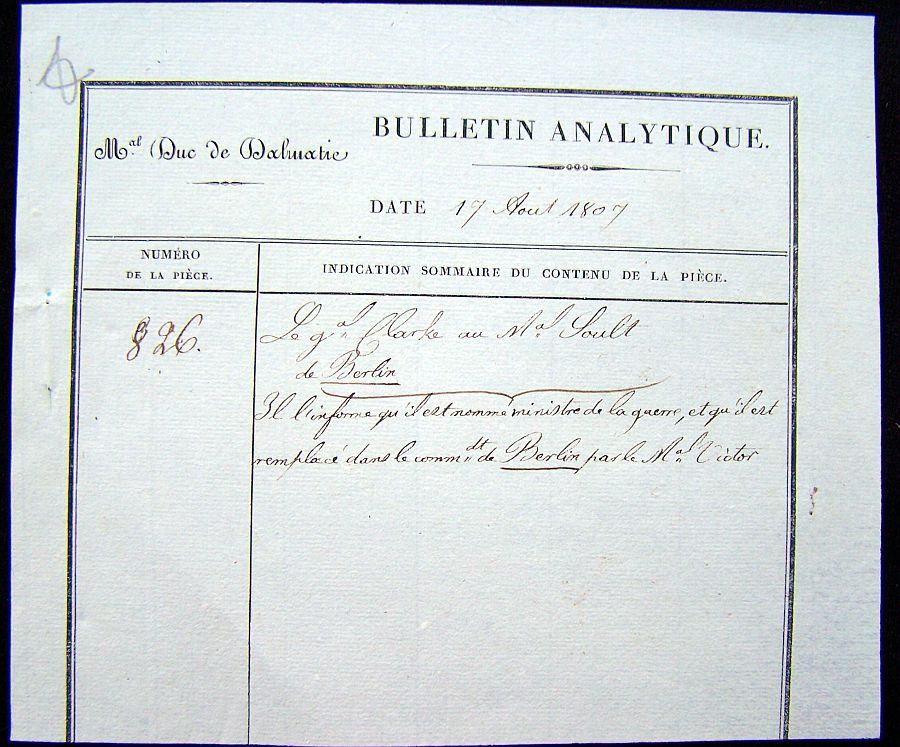 BULLETIN ANALYTIQUE.
Mal Duc de Dalmatie
DATE 17 Aout 1807
NUMÉRO
DE LA PIÈCE.
INDICATION SOMMAIRE DU CONTENU DE LA PIÈCE.
826.
Le gal Clarke au Mal Soult
de Berlin
Il l'informe qu'il est nommé ministre de la guerre, et qu'il est
remplacé dans le commdt de Berlin par le Mal Victor